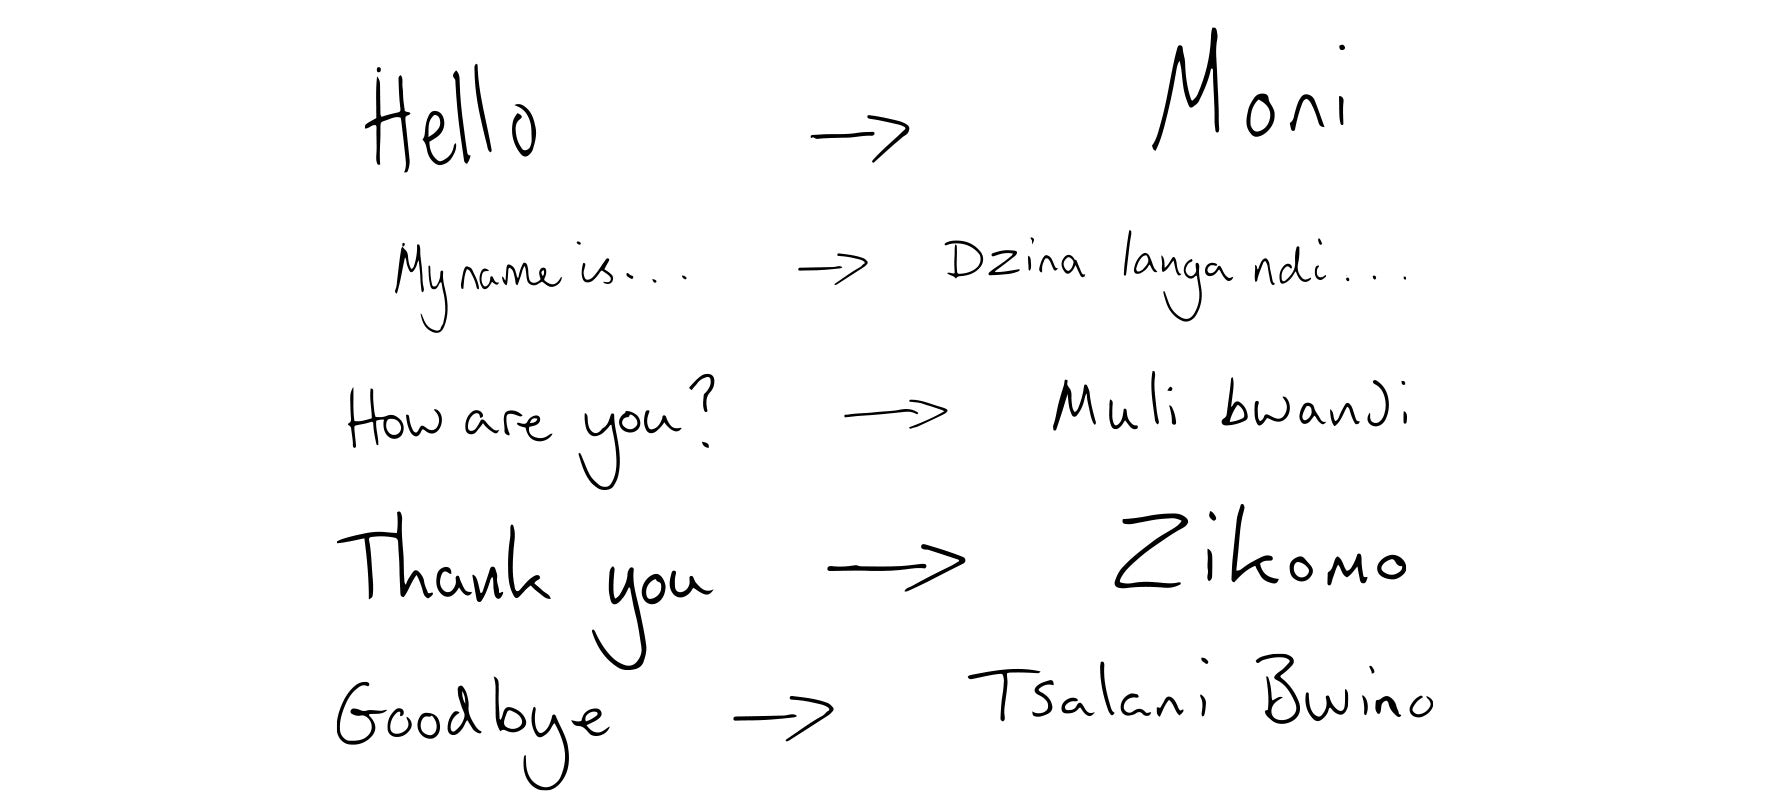 Hello → Moni
My name is... → Dzina langa ndi...
How are you? → Muli bwanji
Thank you → Zikomo
Goodbye → Tsalani Bwino